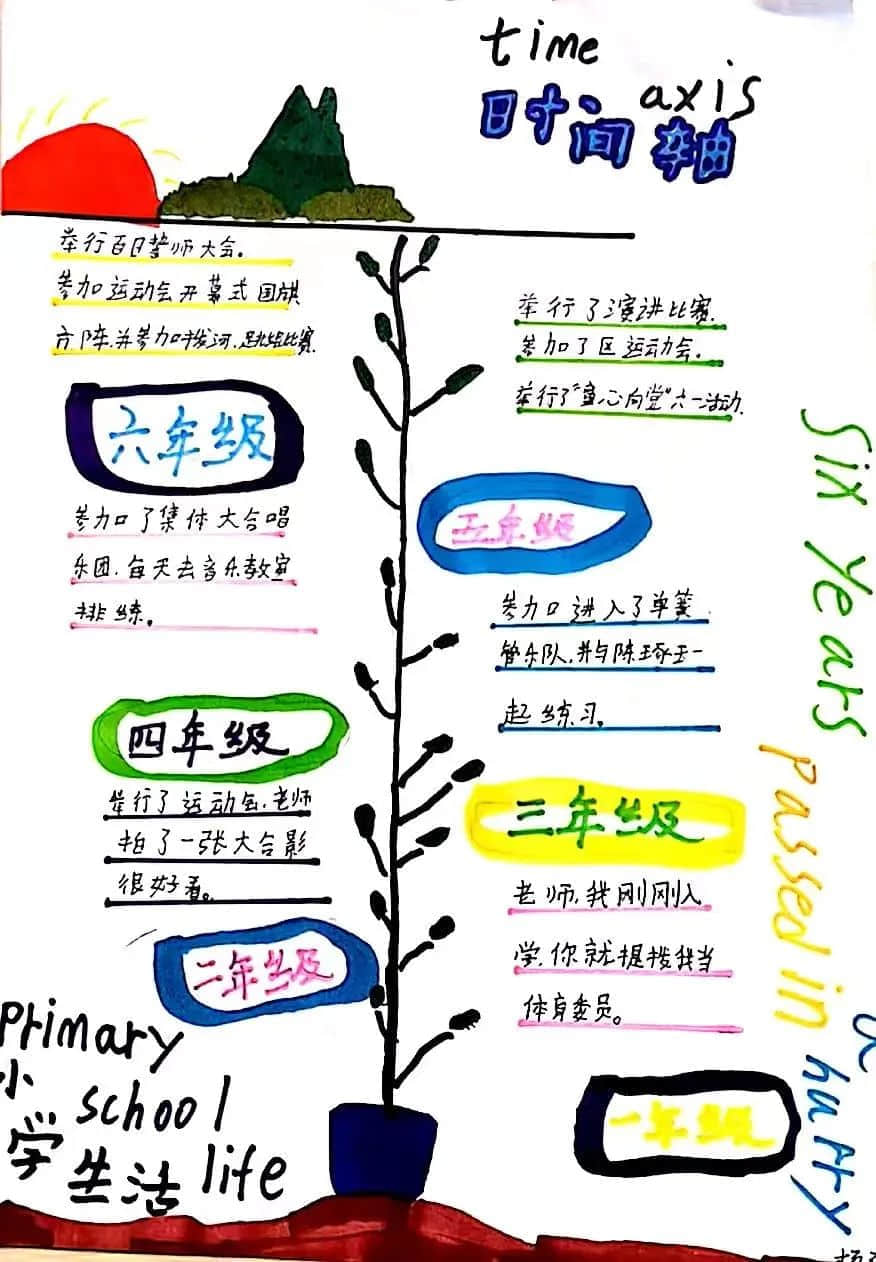 time
axis
时间轴
举行百日誓师大会。
参加运动会开幕式国旗
方阵,并参加拔河,跳绳比赛.
六年级
举行了演讲比赛.
参加了区运动会.
举行了"童心向党"六一活动.
参加了集体大合唱
乐团,每天去音乐教室
排练。
五年级
参加进入了单簧
管乐队,并与陈琢玉一
起练习。
四年级
举行了运动会,老师
拍了一张大合影
很好看。
三年级
老师,我刚刚入
学,你就提拨我当
体育委员。
二年级
一年级
Primary
school
life
小
学
生活
Six Years
Passed in
a
hurry